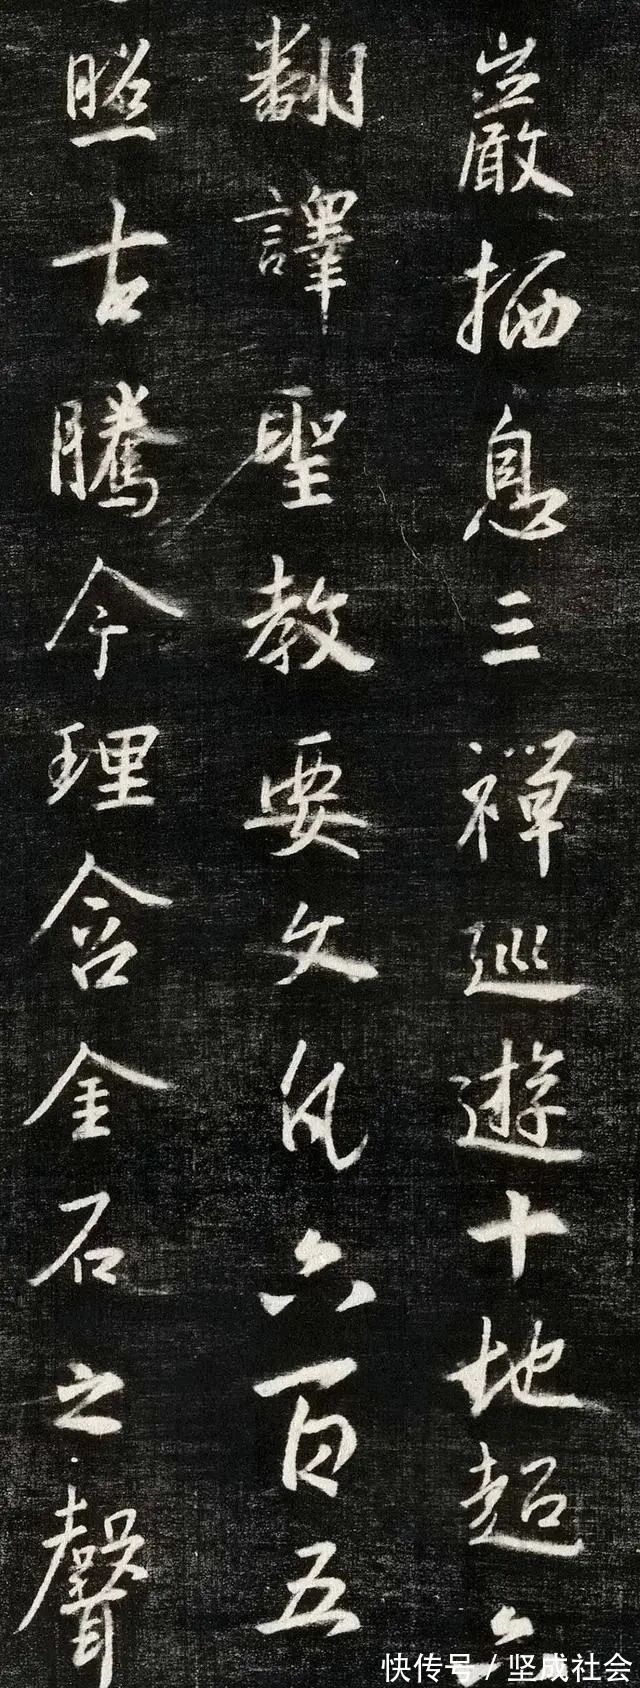 巖栖息三禪巡遊十地超六
翻譯聖教要文凡六百五
照古騰今理含金石之聲
快传号 / 坚成社会